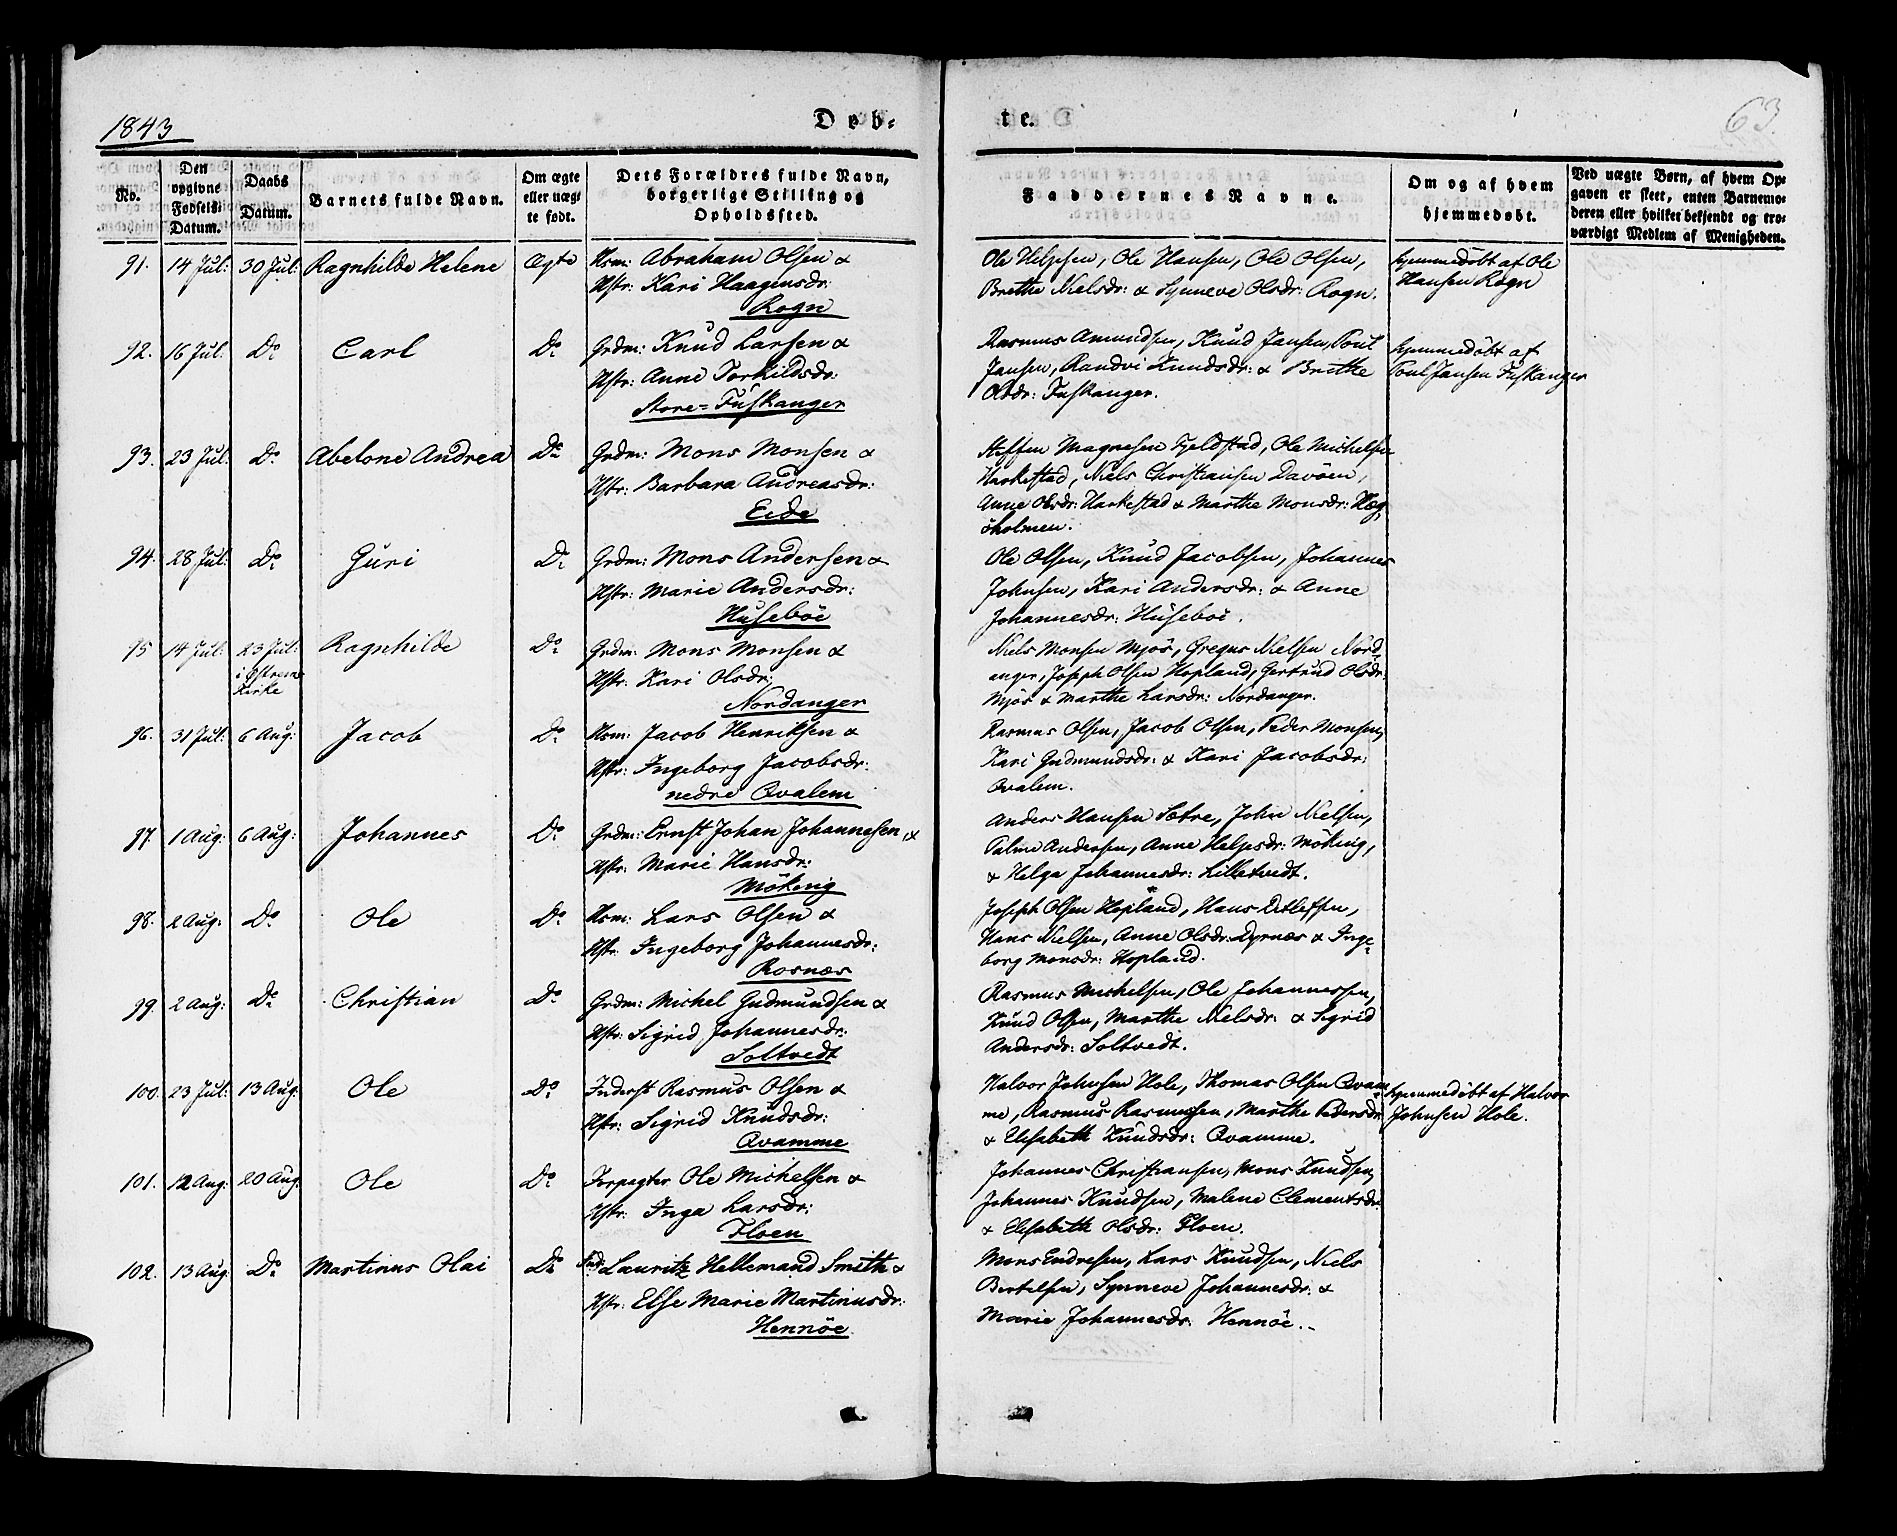 1843
Døb-
te.
63.
No.
Den opgivne Fødsels-Datum.
Daabs Datum.
Barnets fulde Navn.
Om ægte eller uægte født.
Dets Forældres fulde Navn, borgerlige Stilling og Opholdssted.
Faddernes Navne.
Om og af hvem hjemmedøbt.
Ved uægte Børn, af hvem Opgaven er skeet, enten Barnemoderen eller hvilket bekjendt og troværdigt Medlem af Menigheden.
91. 14 Jul: 30 Jul: Ragnhilde Helene Ægte Hsm: Abraham Olsen &
Hstr: Kari Haagensdr:
Rogn
Ole Helgesen, Ole Hansen, Ole Olsen,
Brethe Nielsdr: & Synneve Olsdr: Rogn.
hjemmedöbt af Ole
Hansen Rogn
92. 16 Jul: Do Carl Do Grdm: Knud Larsen &
Hstr: Anne Torkildsdr:
Store-Fuskanger
Rasmus Amundsen, Knud Jansen, Poul
Jansen, Randvi Knudsdr: & Brithe
Olsdr: Fuskanger.
hjemmedöbt af
Poul Jansen Fuskanger
93. 23 Jul: Do Abelone Andrea Do Grdm: Mons Monsen &
Hstr: Barbara Andreasdr:
Eide
Steffen Magnesen Fjeldstad, Ole Michelsen
Harkestad, Niels Christiansen Davöen,
Anne Olsdr: Harkestad & Marthe Monsdr: Hæg-
öholmen.
94. 28 Jul: Do Guri Do Grdm: Mons Andersen &
Hstr: Marie Andersdr:
Huseböe
Ole Olsen, Knud Jacobsen, Johannes
Johnsen, Kari Andersdr: & Anne
Johannesdr: Huseböe.
95 14 Jul: 23 Jul: i Østreims Kirke Ragnhilde Do Grdm: Mons Monsen &
Hstr: Kari Olsdr:
Nordanger
Niels Monsen Mjös, Gregus Nielsen Nord-
anger, Joseph Olsen Hopland, Gertrud Olsdr:
Mjös & Marthe Larsdr: Nordanger.
96. 31 Jul: 6 Aug: Jacob Do Hsm: Jacob Henriksen &
Hstr: Ingeborg Jacobsdr:
nedre Qvalem
Rasmus Olsen, Jacob Olsen, Peder Monsen,
Kari Gudmundsdr: & Kari Jacobsdr:
Qvalem.
97. 1 Aug: 6 Aug: Johannes Do Grdm: Ernst Johan Johannesen, &
Hstr: Marie Hansdr:
Möking
Anders Hansen Sætre, John Nielsen,
Palme Andersen, Anne Helgesdr: Möking,
& Helga Johannesdr: Lilletvedt.
98. 2 Aug: Do Ole Do Hsm: Lars Olsen &
Hstr: Ingeborg Johannesdr:
Rosnæs
Joseph Olsen Hopland, Hans Detlefsen,
Hans Nielsen, Anne Olsdr: Dyrnæs & Inge-
borg Monsdr: Hopland.
99. 2 Aug: Do Christian Do Grdm: Michel Gudmundsen &
Hstr: Sigrid Johannesdr:
Soltvedt
Rasmus Michelsen, Ole Johannessen,
Knud Olsen, Marthe Nielsdr: & Sigrid
Andersdr: Soltvedt.
100. 23 Jul: 13 Aug: Ole Do Inderst Rasmus Olsen &
Hstr: Sigrid Knudsdr:
Qvamme
Halvor Johnsen Hole, Thomas Olsen Qvam-
me, Rasmus Rasmussen, Marthe Pedersdr:
& Elisabeth Knudsdr: Qvamme.
hjemmedöbt af Halvor
Johnsen Hole.
101. 12 Aug: 20 Aug: Ole Do Forpagter Ole Michelsen &
Hstr: Inga Larsdr:
Floen
Johannes Christiansen, Mons Knudsen,
Johannes Knudsen, Malene Clementsdr:
& Elisabeth Olsdr: Floen.
102. 13 Aug: Do Martinus Olai Do Ind: Lauritz Hellemand Smith &
Hstr: Else Marie Martinusdr:
Hennöe
Mons Endresen, Lars Knudsen, Niels
Bertelsen, Synneve Johannesdr: &
Marie Johannesdr: Hennöe.